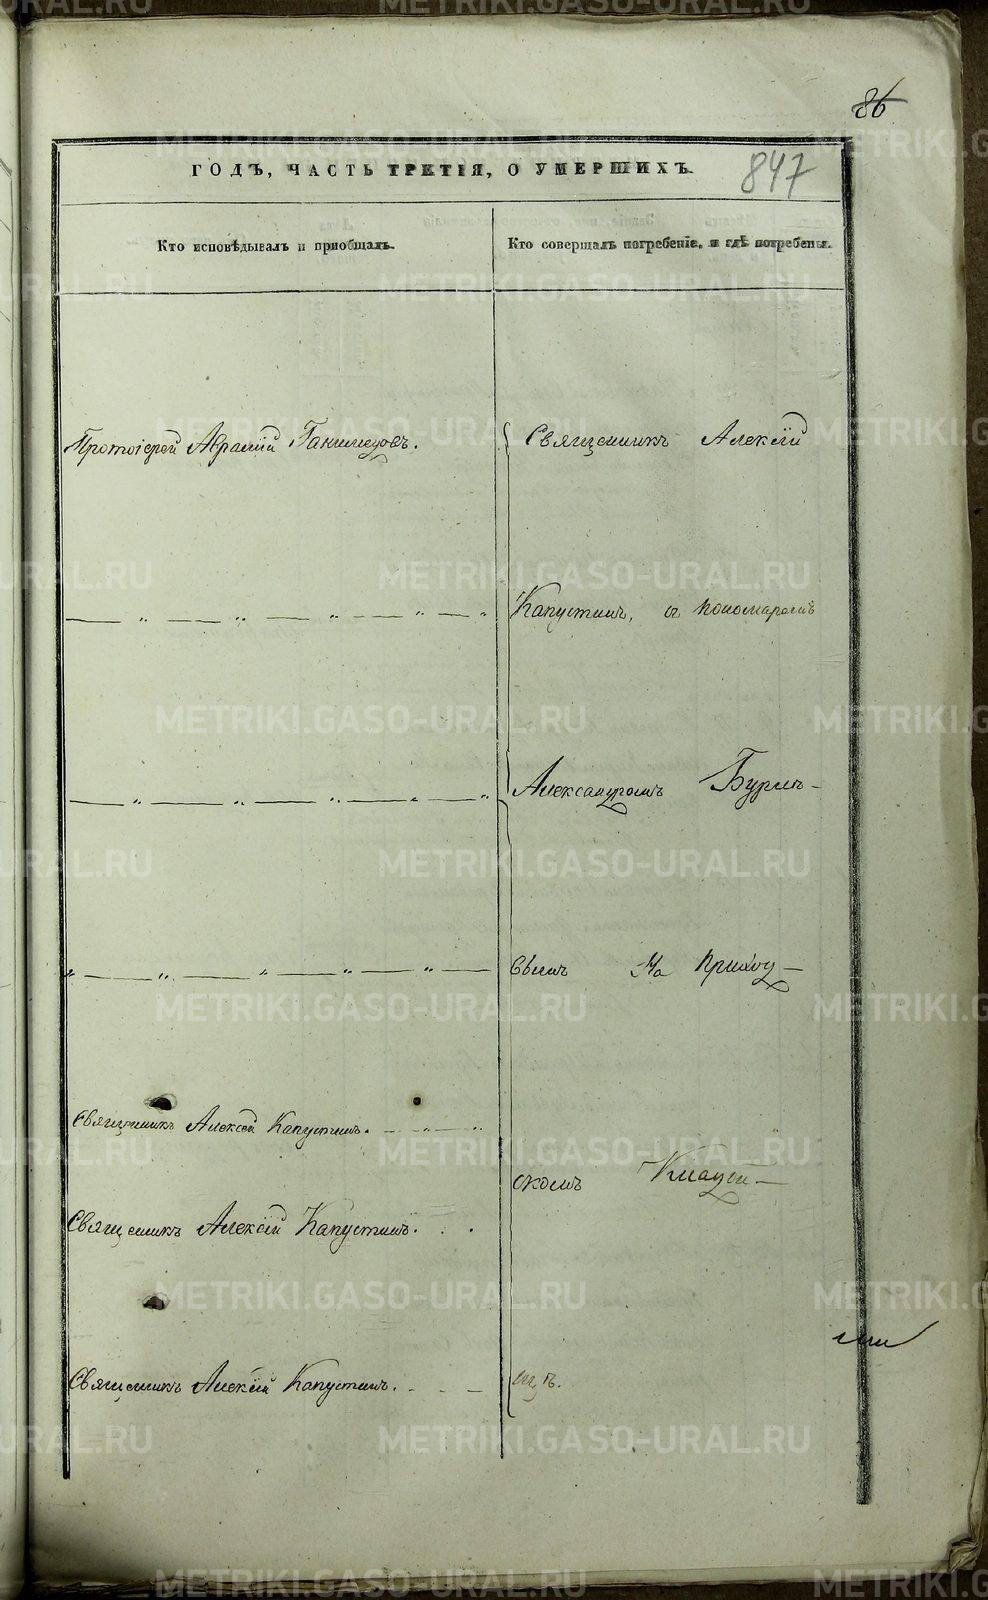 86
ГОДЪ, ЧАСТЬ ТРЕТІЯ, О УМЕРШИХЪ.
847
Кто исповѣдывалъ и приобщалъ.
Кто совершалъ погребеніе, и гдѣ погребены.
Протоіерей Авраамій Ганимедовъ.
Священникъ Алексій
Капустинъ, съ пономаремъ
Александромъ Бурм-
вымъ На приход-
Священникъ Алексій Капустинъ.
скомъ Кладби-
Священникъ Алексій Капустинъ.
Священникъ Алексій Капустинъ.
щѣ.
METRIKI.GASO-URAL.RU